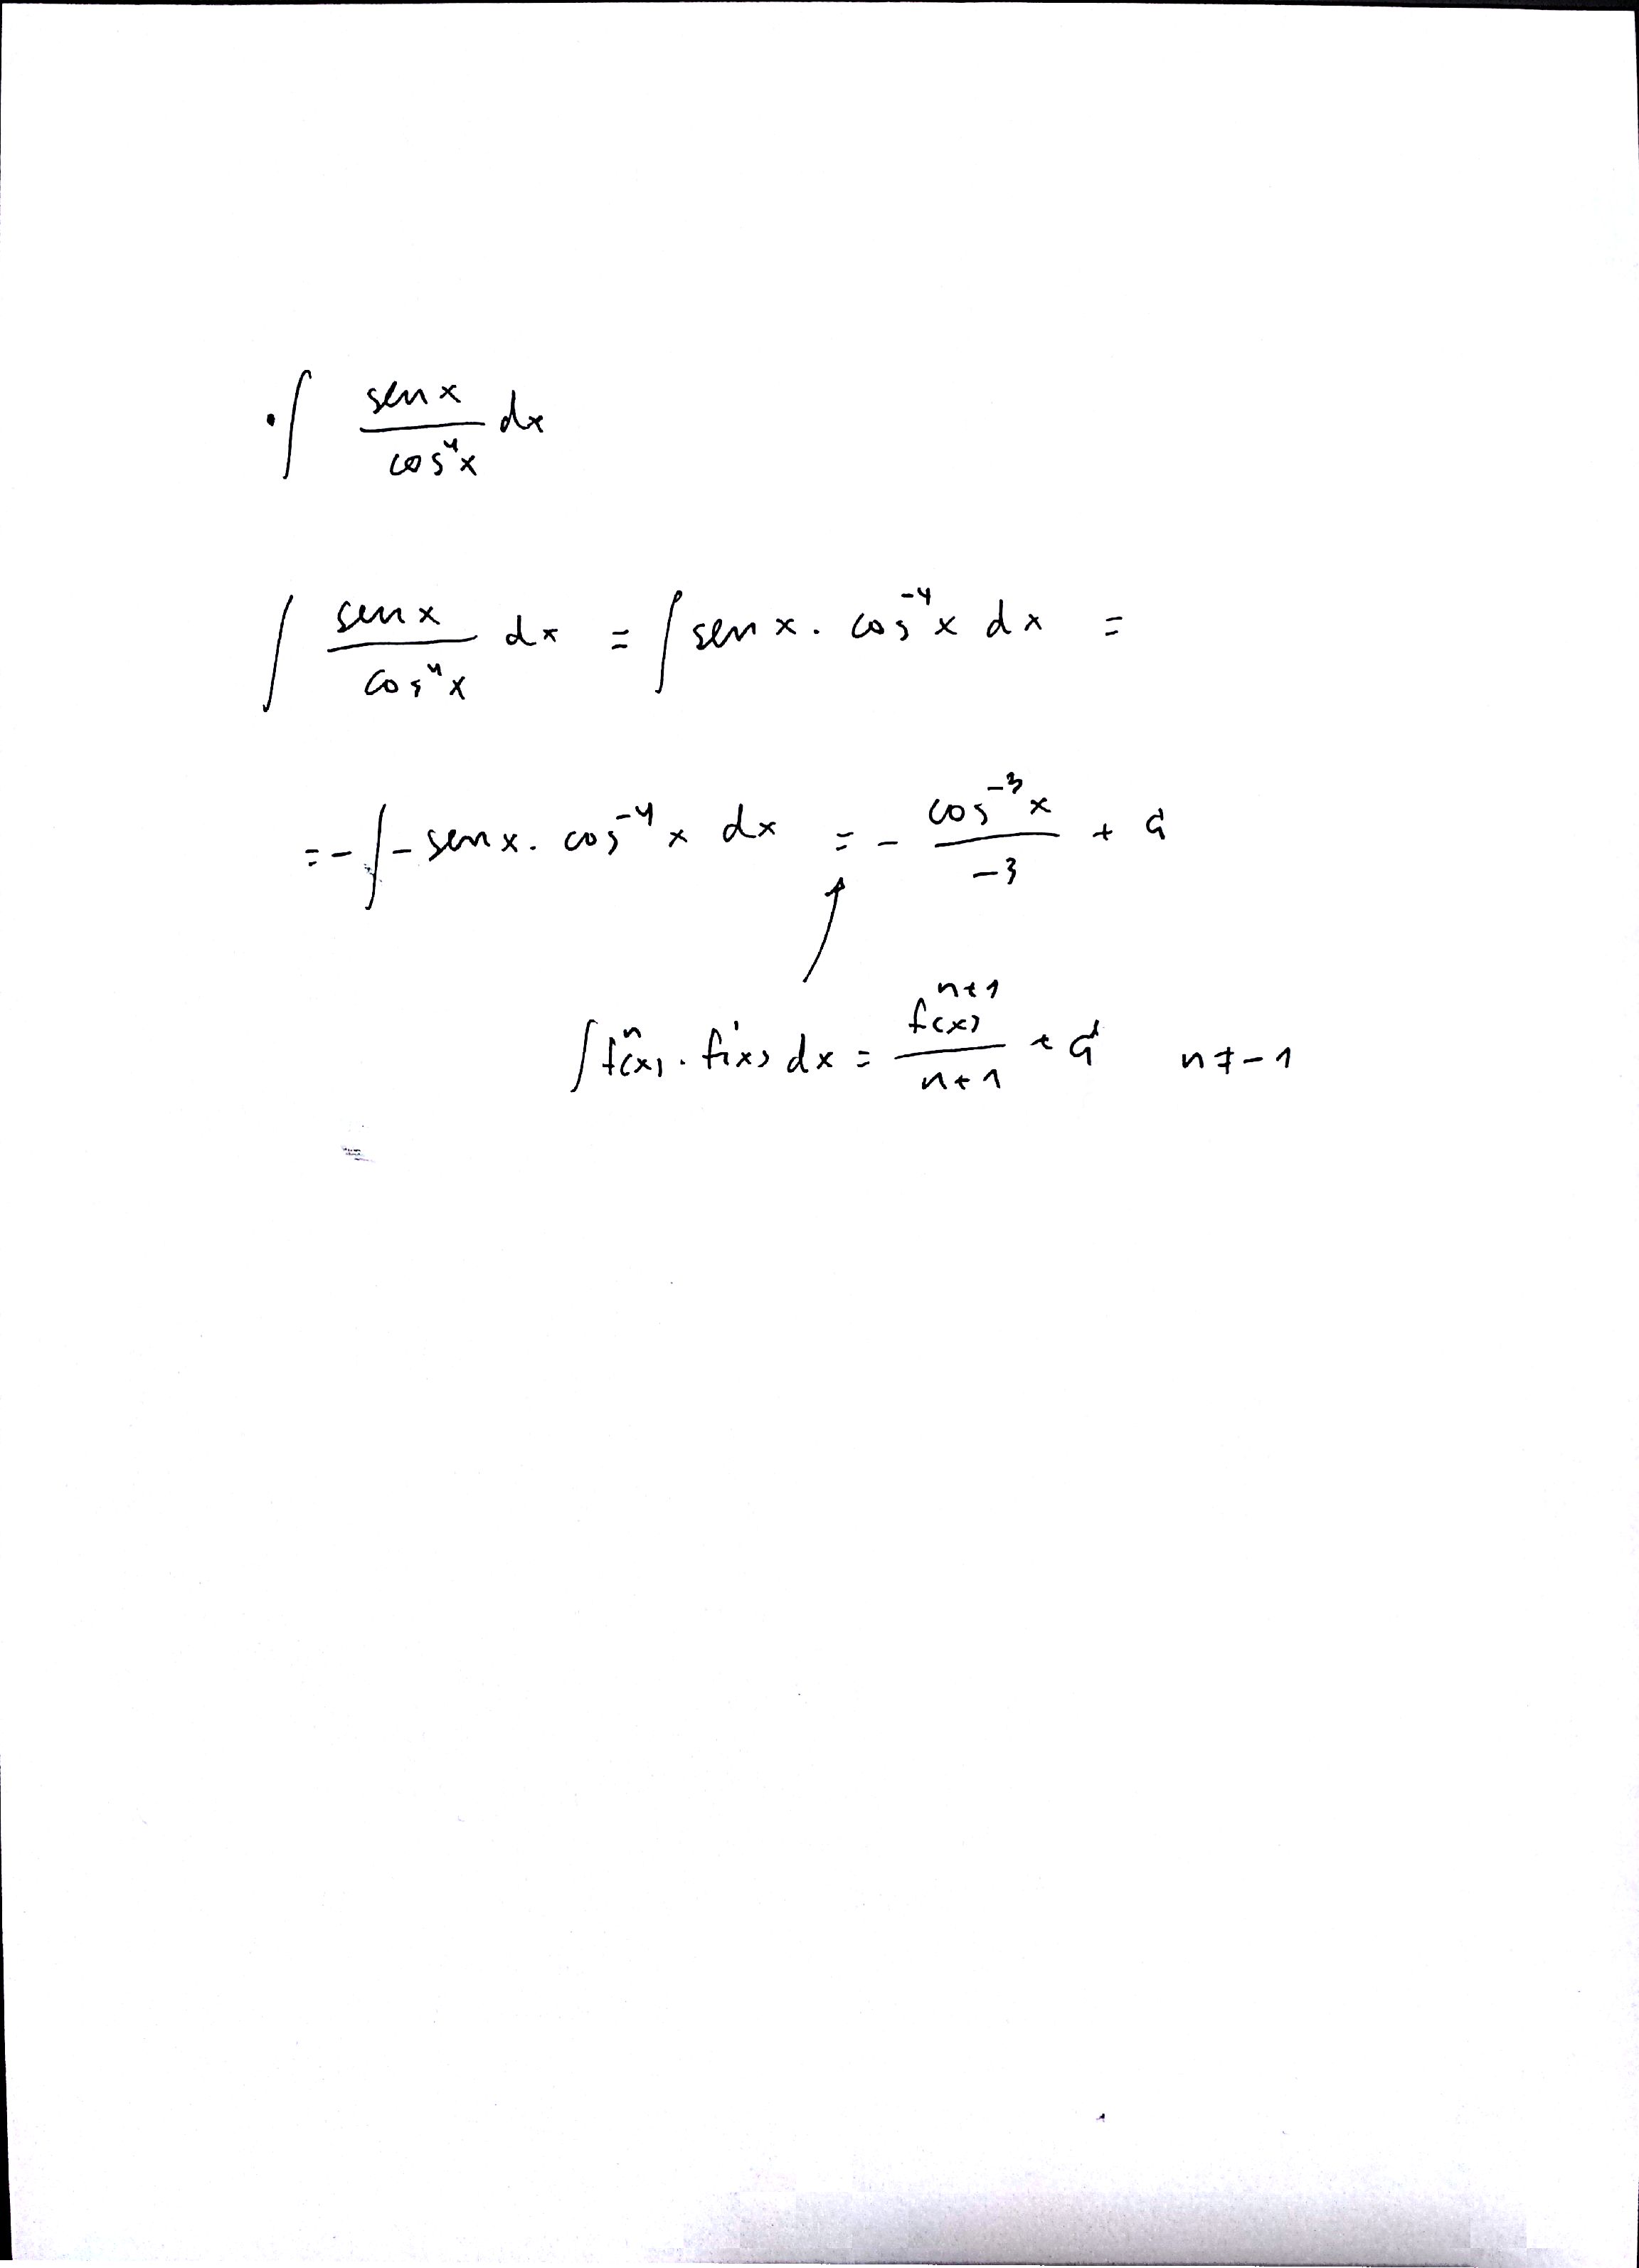 · ∫ sen x / cos⁴x dx
∫ sen x / cos⁴x dx = ∫ sen x . cos⁻⁴x dx =
= - ∫ - sen x . cos⁻⁴x dx = - cos⁻³x / -3 + C
∫ fⁿ(x) . f'(x) dx = f(x)ⁿ⁺¹ / n+1 + C n ≠ -1